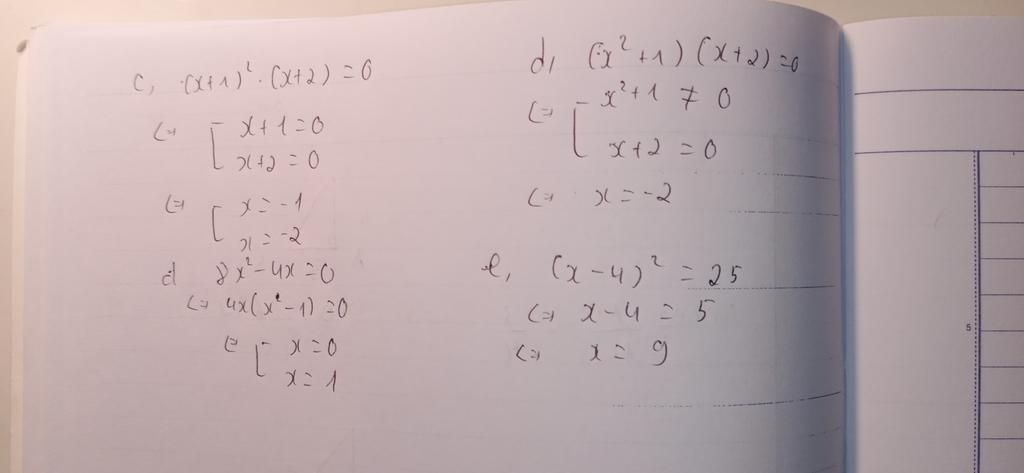 c, (x+1)² . (x+2) = 0
<=> [ x+1=0
x+2 = 0
<=> [ x = -1
x = -2
d 8x² - 4x = 0
<=> 4x(x² - 1) = 0
<=> [ x = 0
x = 1
d, (x² + 1) (x+2) = 0
<=> [ x² + 1 ≠ 0
x+2 = 0
<=> x = -2
e, (x - 4)² = 25
<=> x - 4 = 5
<=> x = 9
5